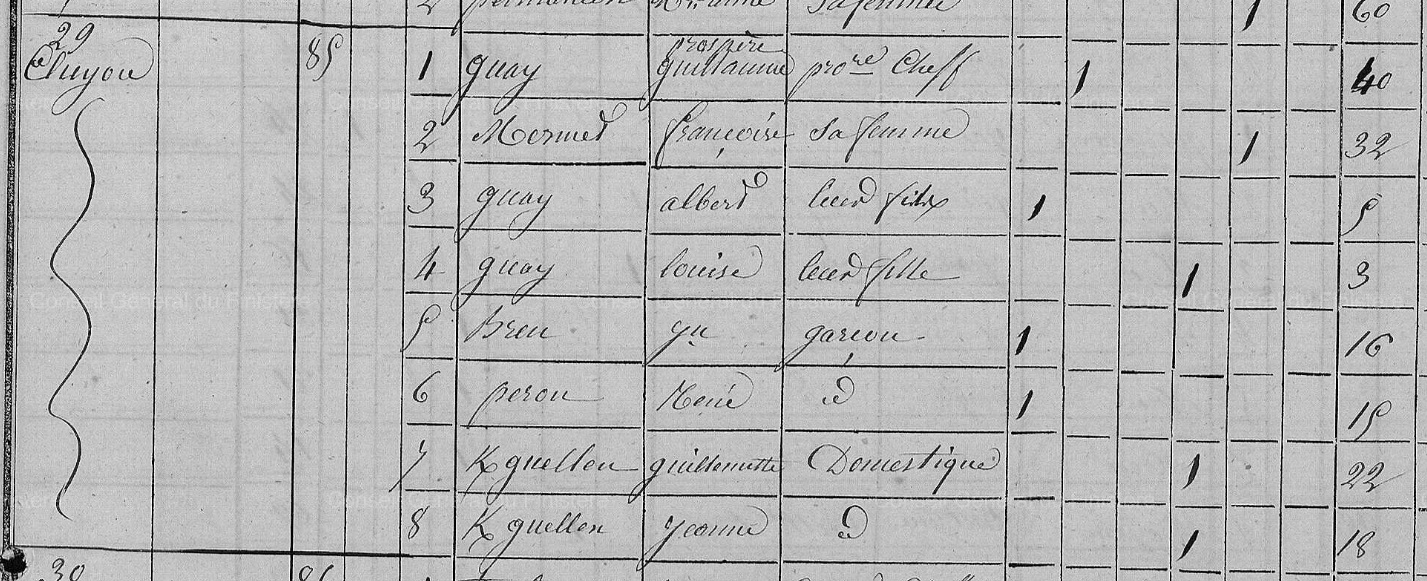 2 Marianne sa femme 1 60
29 Cluyou 85 1 quay prospère guillaume pro.re Cheff 1 40
2 Mermet françoise Sa femme 1 32
3 quay albert leur fils 1 5
4 quay louise leur fille 1 3
5 Bren yn garçon 1 16
6 peron René d 1 15
7 K guellen guillemette Domestique 1 22
8 K guellen jeanne d 1 18
30 86